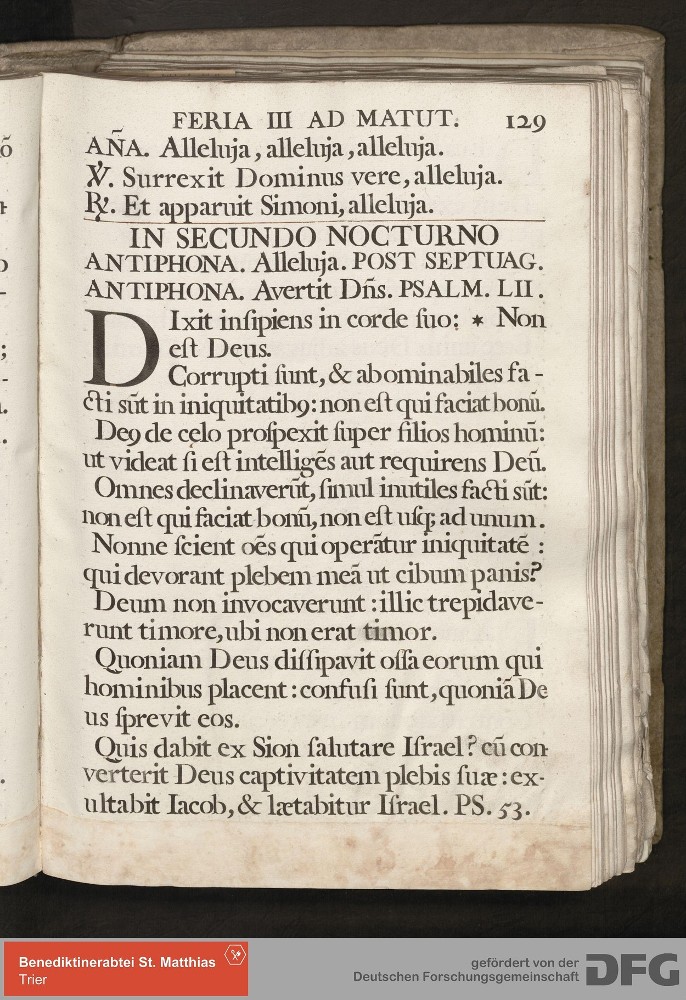 FERIA III AD MATUT. 129
AÑA. Alleluja, alleluja, alleluja.
℣. Surrexit Dominus vere, alleluja.
℟. Et apparuit Simoni, alleluja.
IN SECUNDO NOCTURNO
ANTIPHONA. Alleluja. POST SEPTUAG.
ANTIPHONA. Avertit Dñs. PSALM. LII.
DIxit inſipiens in corde ſuo: * Non
eſt Deus.
Corrupti ſunt, & abominabiles fa-
cti sūt in iniquitatibꝯ: non eſt qui faciat bonū.
Deꝯ de cęlo proſpexit ſuper filios hominū:
ut videat ſi eſt intelligēs aut requirens Deū.
Omnes declinaverūt, ſimul inutiles facti sūt:
non eſt qui faciat bonū, non eſt uſq; ad unum.
Nonne ſcient oēs qui operātur iniquitatē :
qui devorant plebem meā ut cibum panis?
Deum non invocaverunt: illic trepidave-
runt timore, ubi non erat timor.
Quoniam Deus diſſipavit oſſa eorum qui
hominibus placent: confuſi ſunt, quoniā De
us ſprevit eos.
Quis dabit ex Sion ſalutare Iſrael? cū con-
verterit Deus captivitatem plebis ſuæ: ex-
ultabit Iacob, & lætabitur Iſrael. PS. 53.
Benediktinerabtei St. Matthias
Trier
gefördert von der
Deutschen Forschungsgemeinschaft DFG